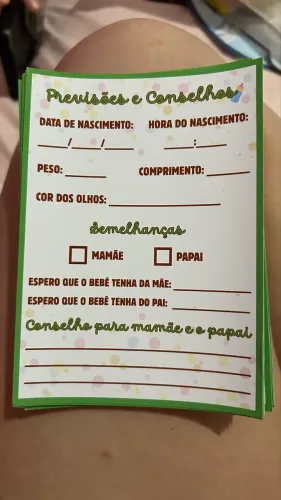 Previsões e Conselhos
DATA DE NASCIMENTO: HORA DO NASCIMENTO:
____/____/____ ____:____
PESO: ______ COMPRIMENTO: ______
COR DOS OLHOS: ______________
Semelhanças
MAMÃE PAPAI
ESPERO QUE O BEBÊ TENHA DA MÃE: __________
ESPERO QUE O BEBÊ TENHA DO PAI: __________
Conselho para mamãe e o papai